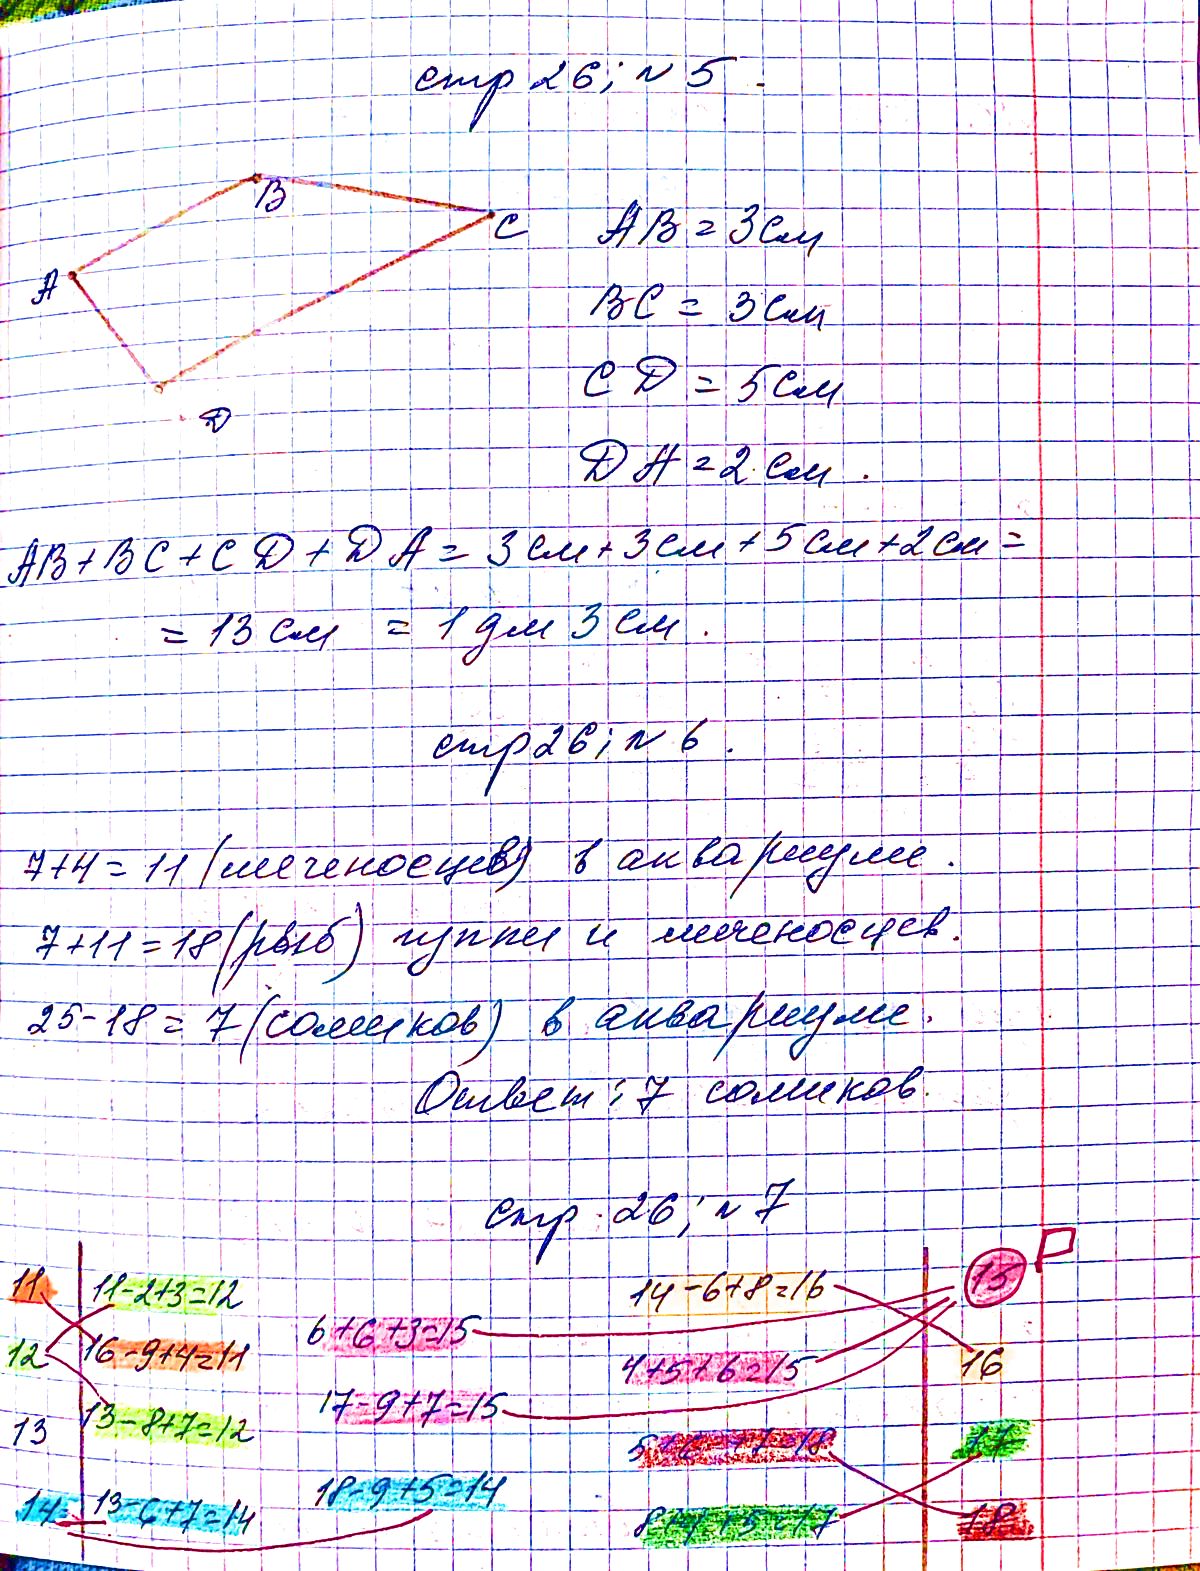 стр 26; № 5.
B
C
A
D
AB = 3см
BC = 3см
CD = 5см
DA = 2см.
AB+BC+CD+DA = 3см+3см+5см+2см=
= 13см = 1дм 3см.
стр 26; № 6.
7+4=11 (меченосцев) в аквариуме.
7+11=18 (рыб) гуппи и меченосцев.
25-18=7 (сомиков) в аквариуме.
Ответ: 7 сомиков.
стр. 26; № 7
11 11-2+3=12 14-6+8=16 15 Р
6+6+3=15
12 16-9+4=11 4+5+6=15 16
17-9+7=15
13 13-8+7=12 5+6+7=18 17
18-9+5=14
14 13-6+7=14 8+4+5=17 18